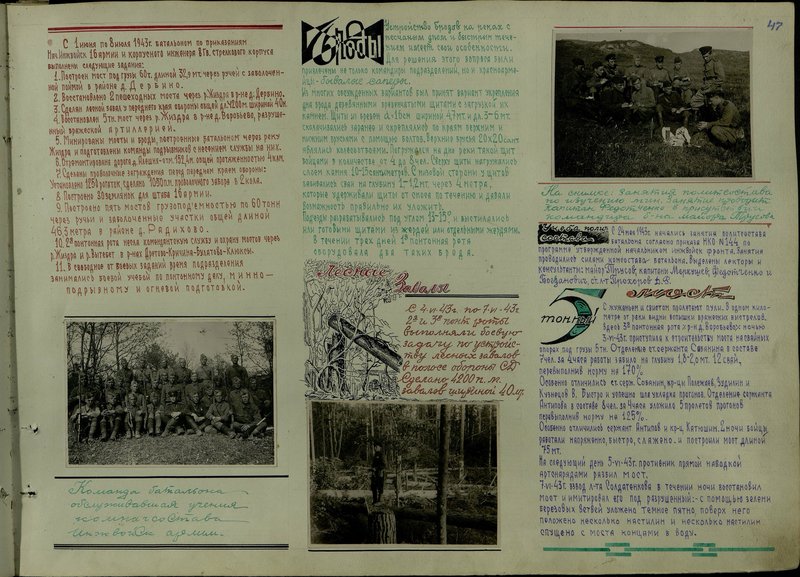 47
С 1 июня по 8 июля 1943г. батальоном по приказаниям
Нач. Инжвойск 16 армии и корпусного инженера 8 Гв. стрелкового корпуса
выполнены следующие задания:
1. Построен мост под грузы 60т. длиной 32,9 мт. через ручей с заболочен-
ной поймой в районе д. Дербино.
2. Восстановлено 2 пешеходных моста через р. Жиздра в р-не д. Дербино.
3. Сделан лесной завал у переднего края обороны общей дл. 4200м. шириной 40м.
4. Восстановлен 5тн. мост через р. Жиздра в р-не д. Воробьево, разруше-
нный вражеской артиллерией.
5. Минированы мосты и броды, построенные батальоном через реку
Жиздра и подготовлены команды подрывников с несением службы на них.
6. Отремонтирована дорога д. отм. 152,4 м. общей протяженностью 4 клм.
7. Сделаны проволочные заграждения перед передним краем обороны:
Установлено 1250 рогаток сделано 1050 п.м. проволочного забора в 2 кола.
8. Построено 30 землянок для штаба 16 армии.
9. Построено пять мостов грузоподъемностью по 60 тонн
через ручьи и заболоченные участки общей длиной
46,5 метра в районе д. Рядихово.
10. 2ая понтонная рота несла комендантскую службу и охрана мостов через
р. Жиздра и р. Вытебет в р-нах Дретово-Кричина-Бухатово-Клюксы.
11. В свободное от боевых заданий время подразделения
занимались вчерне учебой по понтонному делу, минно-
подрывному и огневой подготовкой.
Команда батальона
обслуживавшая учения
комначсостава
инжвойск армии.
Броды
Устройство бродов на реках с
песчаным дном и быстрым тече-
нием имеет свои особенности.
Для решения этого вопроса были
привлечены не только командиры подразделений, но и красноарме-
йцы - бывалые саперы.
Из многих обсужденных вариантов был принят вариант укрепления
дна брода деревянными бревенчатыми щитами с загрузкой их
камнем. Щиты из бревен д-16см. шириной 4,7мт и дл. 5-6 мт.
сколачивались заранее и скреплялись по краям верхним и
нижним брусками с помощью болтов. Верхние бруски 20x20 сант.
являлись колесоотбоями. Погружался на дно реки такой щит
бойцами в количестве от 4 до 8 чел. Сверху щиты нагружались
слоем камня 10-15 сантиметров. С низовой стороны у щитов
забивались сваи на глубину 1-1,2 мт. через 4 метра,
которые удерживали щиты от сноса по течению и давали
возможность правильно их уложить.
Подходы разрабатывались под углом 11-15° и выстилались
или готовыми щитами из жердей или отдельными жердями.
В течении трех дней 1ая понтонная рота
оборудовала два таких брода.
Лесные
Завалы
С 4-VI-43г. по 7-VI-43г.
2я и 3я понт. роты
выполняли боевую
задачу по устройс-
тву лесных завалов
в полосе обороны СД
Сделано 4200 п.м.
завалов шириной 40 м.
На снимке: занятия политсостава
по изучению мин. Занятие проводит
капитан Федотченко в присутствии
командира б-на майора Трусова
Учеба полит-
состава
С 24 мая 1943г. начались занятия политсостава
батальона согласно приказа НКО №144 по
программе утвержденной начальником инжвойск фронта. Занятия
проводились силами комсостава батальона. Выделены лекторы и
консультанты: майор Трусов, капитаны Меркушев, Федотченко и
Теофанович, ст. л-т Прохоров А.Ф.
5
тонный
мост
С жужжаньем и свистом пролетают пули. В одном кило-
метре от реки видны вспышки вражеских выстрелов.
Здесь 3я понтонная рота у р-н д. Воробьево ночью
3-VI-43г. приступила к строительству моста на свайных
опорах под грузы 5т. Отделение ст. сержанта Савянина в составе
7 чел. за 4 часа работы забило на глубину 1,8-2,0 мт. 12 свай,
перевыполнив норму на 170%
Особенно отличились ст. серж. Савянин, кр-цы Полежаев, Зудилин и
Кузнецов В. Быстро и успешно шла укладка прогонов. Отделение сержанта
Антипова в составе 8 чел. за 4 часа уложило 5 пролетов прогонов
перевыполнив норму на 125%.
Особенно отличились сержант Антипов и кр-ц Катюшин. 2 ночи бойцы
работали напряженно, быстро, слажено. и построили мост длиной
75 мт.
На следующий день 5-VI-43г. противник прямой наводкой
артснарядами разбил мост.
7-VI-43г. взвод л-та Солдатенкова в течении ночи восстановил
мост и имитировал его под разрушенный: - с помощью зелени
березовых ветвей уложено темное пятно, поверх него
положено несколько настилин и несколько настилин
спущено с моста концами в воду.